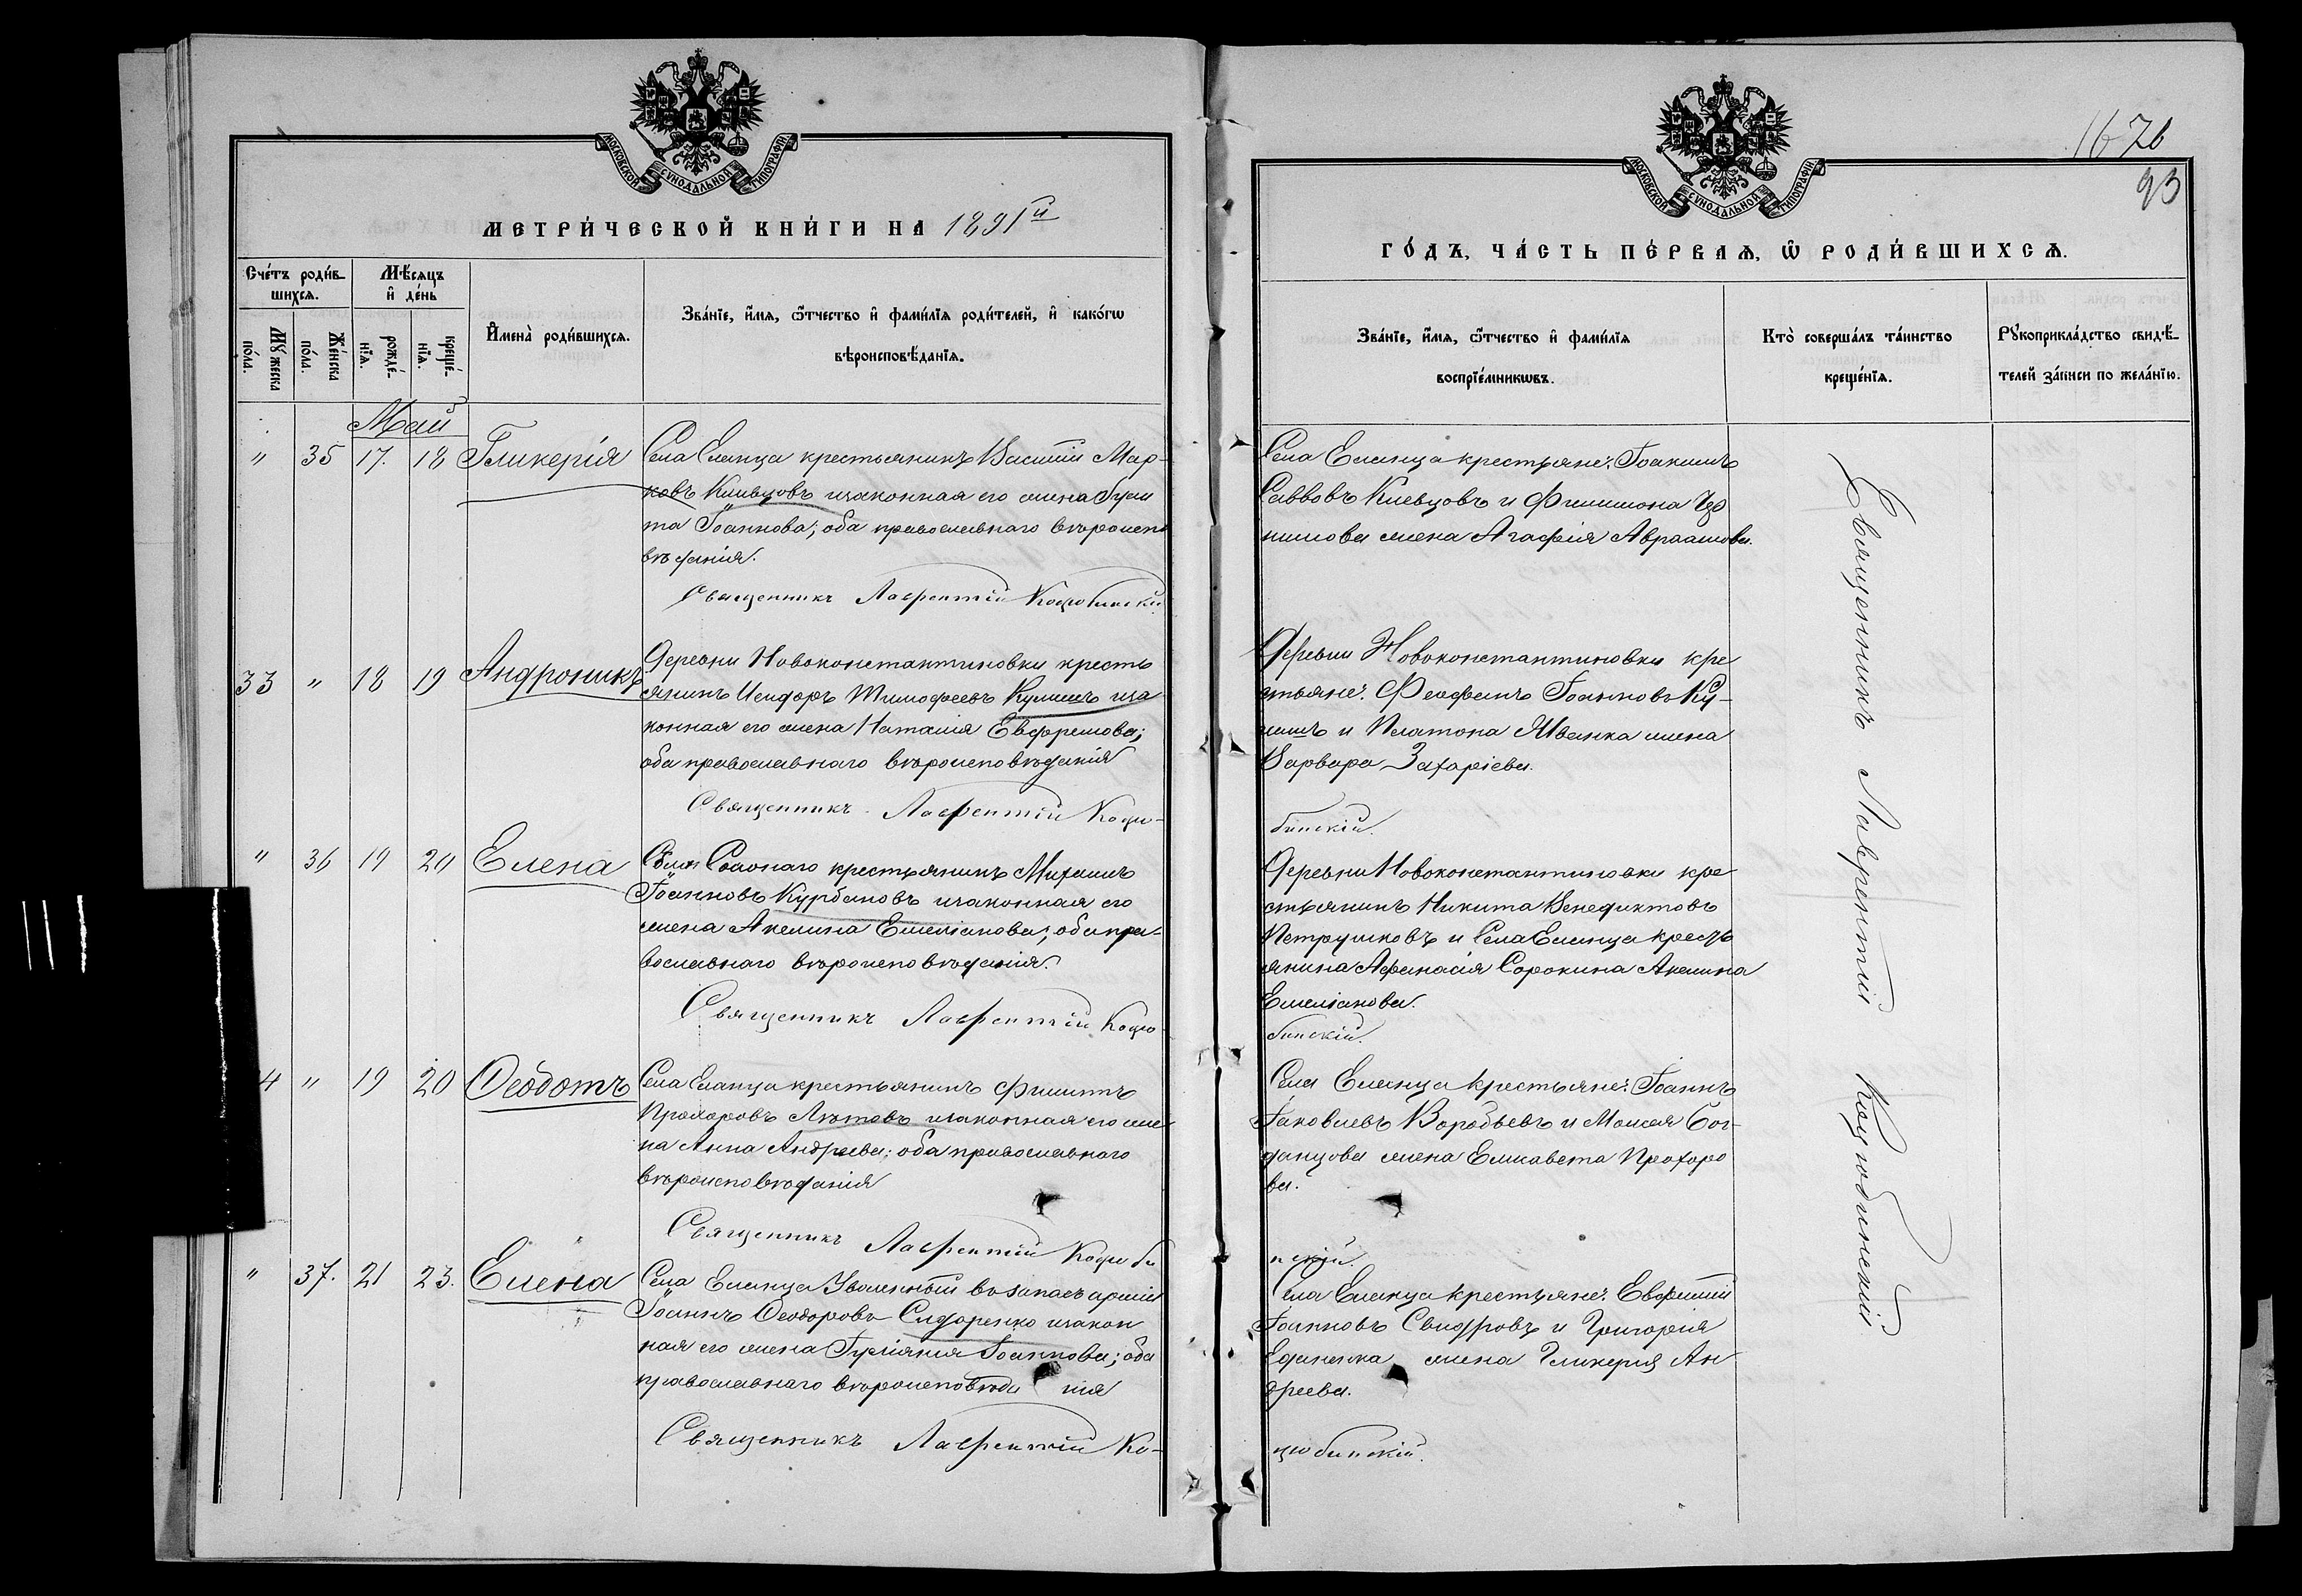 МОСКОВСКОЙ СѴНОДАЛЬНОЙ ТИПОГРАФІИ.
МЕТРИЧЕСКОЙ КНИГИ НА 1891й
Счетъ родив-
шихся.
Мѣсяцъ
и день
Имена родившихся.
Званіе, имя, отчество и фамилія родителей, и какогѡ
вѣроисповѣданія.
Мужеска
пола.
Женска
пола.
рожде-
нія.
креще-
нія.
Май
" 35 17. 18 Гликерія
Села Еланца крестьянинъ Василій Мар-
ковъ Киевцовъ и законная его жена
та Іоаннова; оба православнаго вѣроиспо
вѣданія.
Священникъ Лаврентій Коцюбинскій
33 " 18 19 Андроникъ
Деревни Новоконстантиновки кресть
янинъ Исидоръ Тимофеевъ Кулишъ и за
конная его жена Наталія Евфремова;
оба православнаго вѣроисповѣданія
Священникъ Лаврентій Коцю-
" 36 19 20 Елена
Села Соленаго крестьянинъ Михаилъ
Іоанновъ Курбановъ и законная его
жена Акелина Емеліанова; оба пра-
вославнаго вѣроисповѣданія.
Священникъ Лаврентій Коцю-
4 " 19 20 Ѳеодотъ
Села Еланца крестьянинъ Филиппъ
Прохоровъ Лютовъ и законная его же
на Анна Андреева; оба православнаго
вѣроисповѣданія
Священникъ Лаврентій Коцюби
" 37. 21 23. Елена
Села Еланца Уволенный въ запасъ арміи
Іоаннъ Ѳеодоровъ Сидоренко и закон
ная его жена Іуліанія Іоаннова; оба
православнаго вѣроисповѣда нія
Священникъ Лаврентій Ко-
1676
93
МОСКОВСКОЙ СѴНОДАЛЬНОЙ ТИПОГРАФІИ.
ГОДЪ, ЧАСТЬ ПЕРВАЯ, Ѡ РОДИВШИХСЯ.
Званіе, имя, отчество и фамилія
воспріемникѡвъ.
Кто совершалъ таинство
крещенія.
Рукоприкладство свидѣ-
телей записи по желанію.
Села Еланца крестьяне: Іоакимъ
Саввовъ Киевцовъ и Филимона
жена Агафія Авраамова.
Деревни Новоконстантиновки кре
стьяне: Феофанъ Іоанновъ Ку-
лишъ и Платона Иванка жена
Варвара Захаріева.
бинскій.
Деревни Новоконстантиновки кре
стьянинъ Никита Венедиктовъ
Петрушковъ и Села Еланца кресть
янина Афанасія Сорокина Акелина
Емеліанова.
бинскій.
Села Еланца крестьяне: Іоаннъ
Іаковлевъ Воробьевъ и Моисея Бог-
данцова жена Елисавета Прохоро
ва.
нскій.
Села Еланца крестьяне: Евфимій
Іоанновъ Свидровъ и Григорія
жена Гликерія Ан
дреева.
цюбинскій.
Священникъ Лаврентій Коцюбинскій